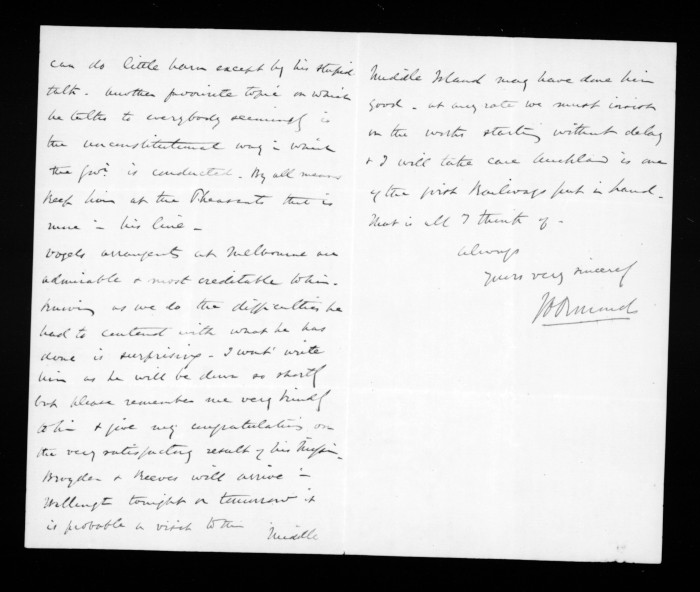 can do little harm except by his stupid
talk. Another favourite topic on which
he talks to everybody seemingly is
the unconstitutional way in which
the Govt. is conducted. By all means
keep him at the Pheasants that is
more in his line -
Vogels arrangents at Melbourne are
admirable & most creditable to him.
Knowing as we do the difficulties he
had to contend with what he has
done is surprising - I wont write
him as he will be down so shortly
but please remember me very kindly
to him & give my congratulations on
the very satisfactory result of his Mission.
Brogden & Reeves will arrive in
Wellingt tonight or tomorrow it
is probable a visit to the
Middle
Middle Island may have done him
good - at any rate we must insist
on the works starting without delay
& I will take care Auckland is one
of the first Railways put in hand.
That is all I think of -
Always
Yours very sincerely
JD Ormond